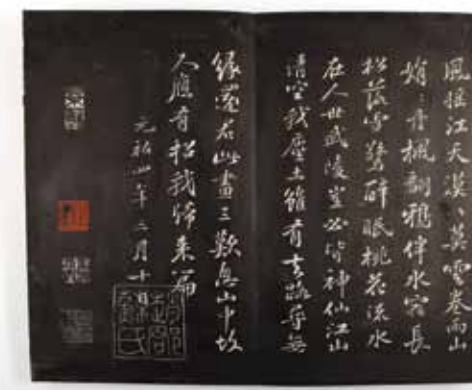 風搖江天漠〻莫雲卷雨山
娟〻丹楓翻鴉伴水宿長
松落雪驚醉眠桃花流水
在人世武陵豈必皆神仙江山
清空我塵土雖有去路尋無
緣還君此畫三歎息山中故
人應有招我歸來篇
元祐四年二月十日